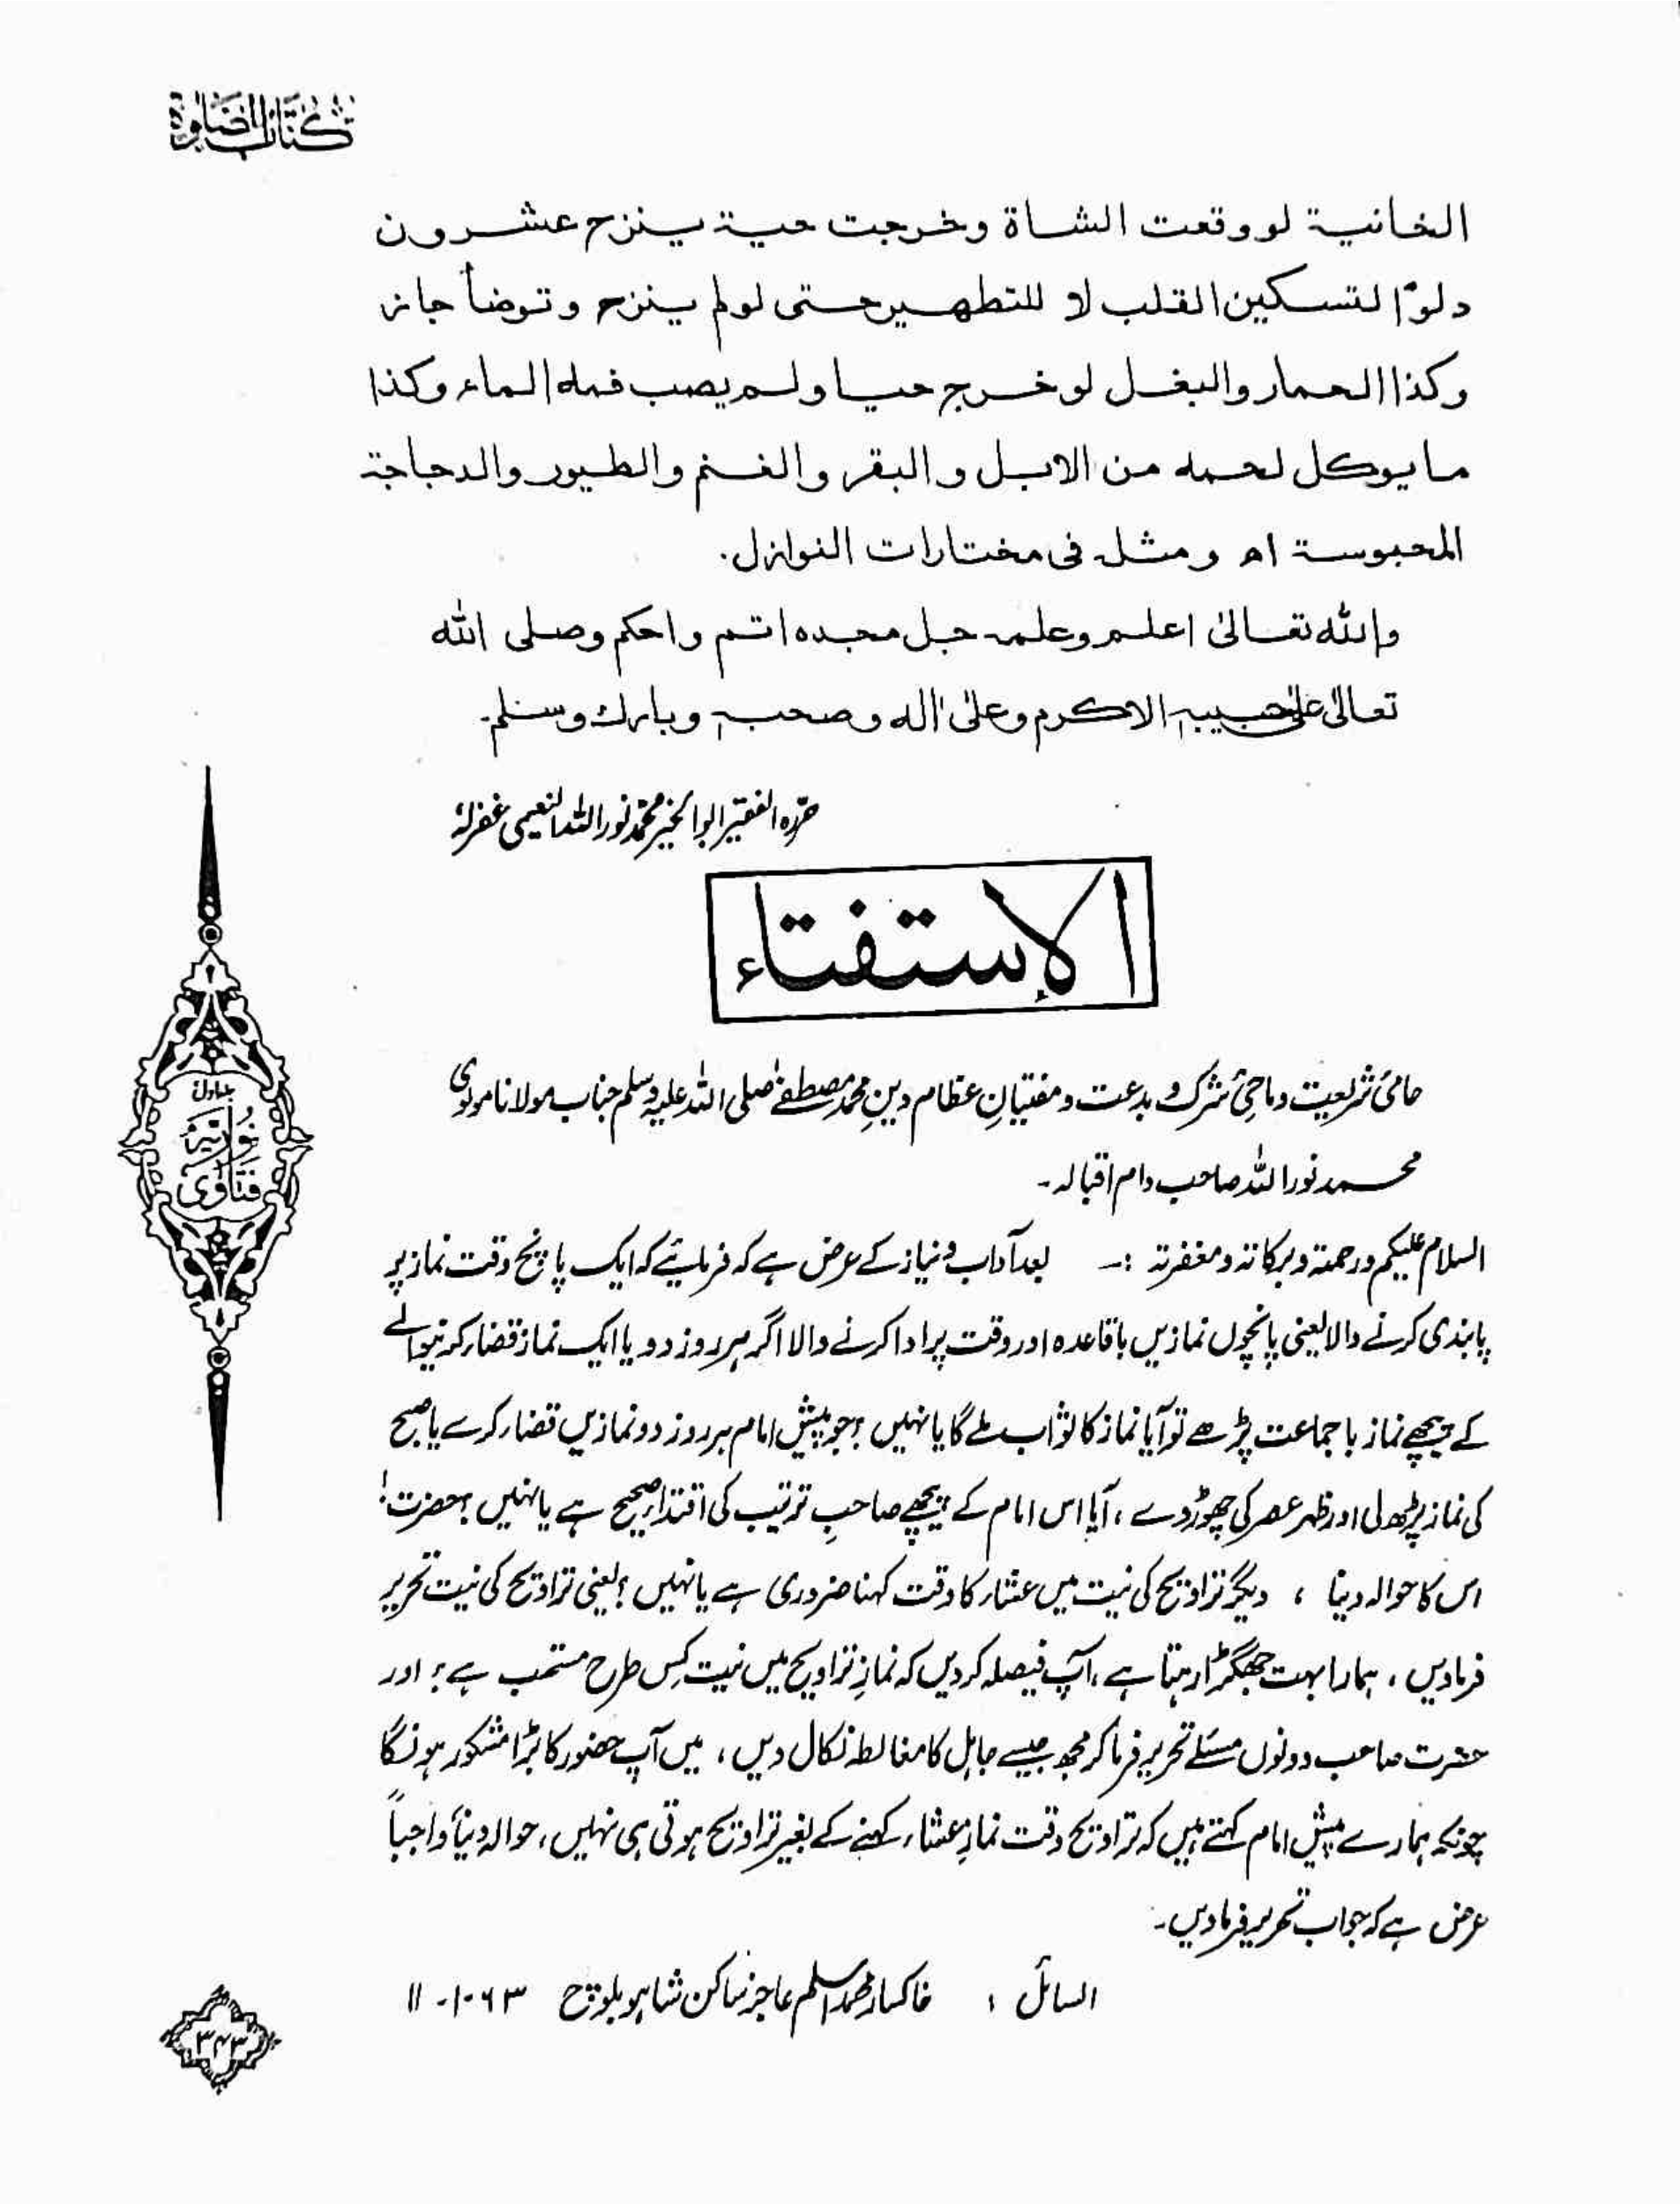 كتاب الصلوة
الخانية لو وقعت الشاة وخرجت حية ينزح عشرون
دلوًا لتسكين القلب لا للتطهير حتى لو لم ينزح وتوضأ جاز
وكذا الحمار والبغل لو خرج حيا ولم يصب فمه الماء وكذا
ما يوكل لحمه من الابل والبقر والغنم والطيور والدجاجة
المحبوسة اھ ومثله فى مختارات النوازل.
والله تعالىٰ اعلم وعلمه جل مجده اتم واحكم وصلى الله
تعالىٰ علىٰ حبيبه الاكرم وعلىٰ اٰله وصحبه وبارك وسلم۔
حرّرہ الفقیر ابو الخیر محمد نور اللہ النعیمی غفرلہٗ
الإستفتاء
حامیٔ شریعت و ماحیٔ شرک و بدعت و مفتیانِ عظام دینِ محمد مصطفےٰ صلی اللہ علیہ وسلم جناب مولانا مولوی
محمد نور اللہ صاحب دام اقبالہ۔
السلام علیکم ورحمتہ وبرکاتہ ومغفرتہ :۔ بعد آداب و نیاز کے عرض ہے کہ فرمائیے کہ ایک پانچ وقت نماز پر
پابندی کرنے والا یعنی پانچوں نمازیں باقاعدہ اور وقت پر ادا کرنے والا اگر ہر روز دو یا ایک نماز قضاء کرنیوالے
کے پیچھے نماز باجماعت پڑھے تو آیا نماز کا ثواب ملے گا یا نہیں ؟ جو پیش امام ہر روز دو نمازیں قضاء کرے یا صبح
کی نماز پڑھ لی اور ظہر عصر کی چھوڑ دے ، آیا اس امام کے پیچھے صاحبِ ترتیب کی اقتداء صحیح ہے یا نہیں ؟ حضرت!
اس کا حوالہ دینا ، دیگر تراویح کی نیت میں عشاء کا وقت کہنا ضروری ہے یا نہیں ؟ یعنی تراویح کی نیت تحریر
فرمادیں ، ہمارا بہت جھگڑا رہتا ہے ، آپ فیصلہ کر دیں کہ نمازِ تراویح میں نیت کس طرح مستحب ہے ؟ اور
حضرت صاحب دونوں مسئلے تحریر فرما کر مجھ جیسے جاہل کا مغالطہ نکال دیں ، میں آپ حضور کا بڑا مشکور ہونگا
چونکہ ہمارے پیش امام کہتے ہیں کہ تراویح وقت نمازِ عشاء کہنے کے بغیر تراویح ہوتی ہی نہیں ، حوالہ دیناً واجباً
عرض ہے کہ جواب تحریر فرمادیں۔
السائل : خاکسار محمد اسلم عاجز ساکن شاہو بلوچ ۶۳-۱۰-۱۱
جلد اول
نوریہ
فتاویٰ
۳۴۳